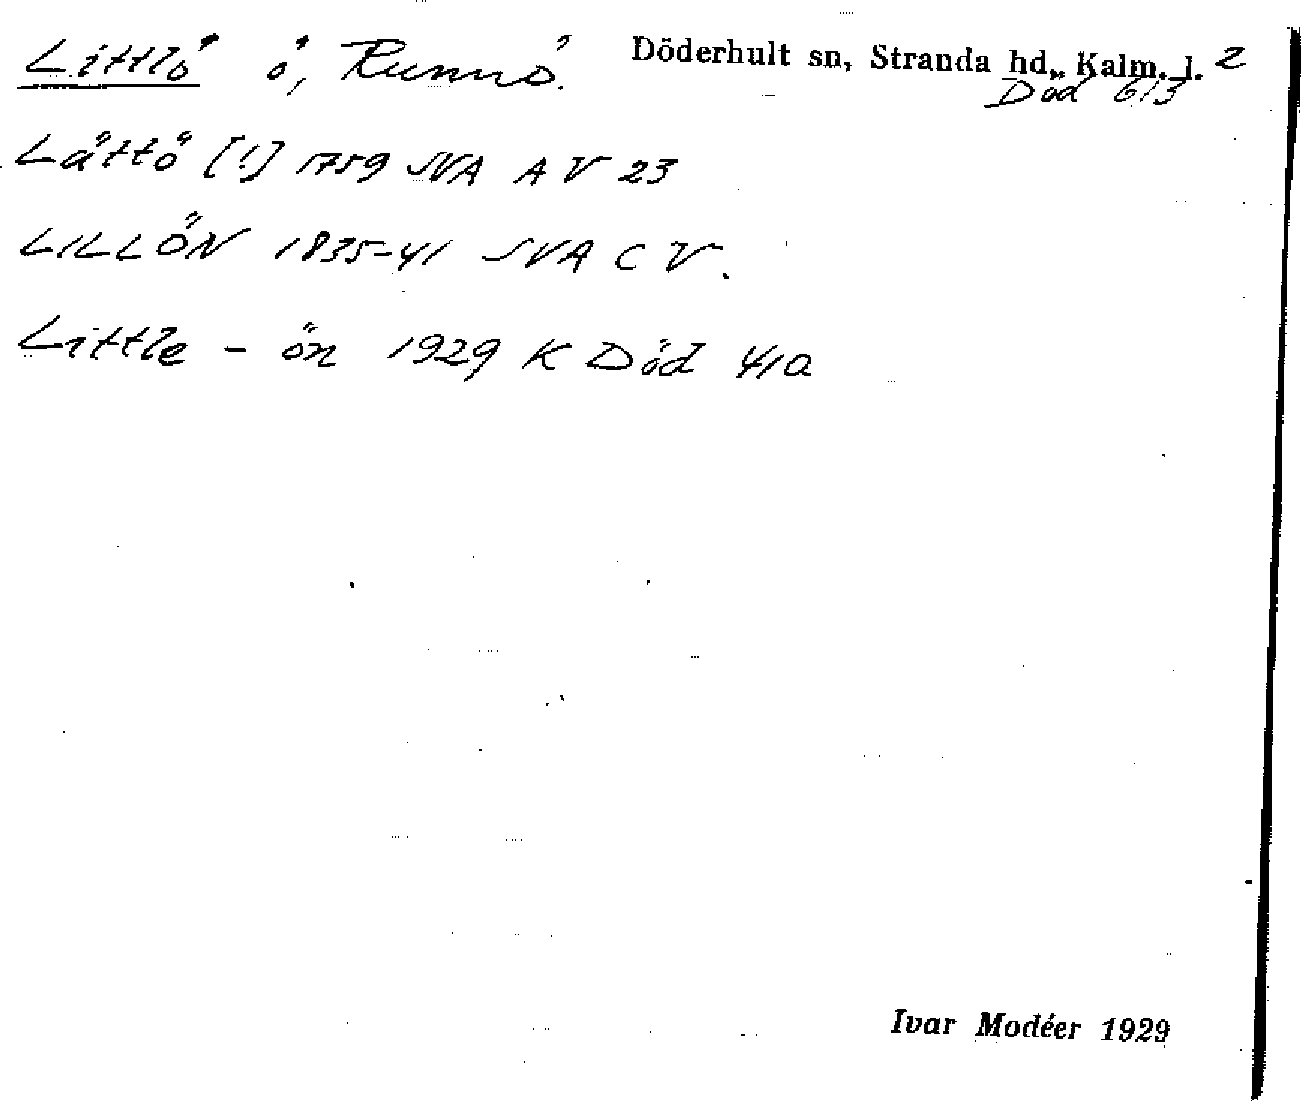 Littlö ö, Runnö. Döderhult sn, Stranda hd., Kalm. l. 2
Död 613
Lättö [!] 1759 SVA A V 23
LILLÖN 1835-41 SVA C V.
Little - ön 1929 K Död 41a
Ivar Modéer 1929